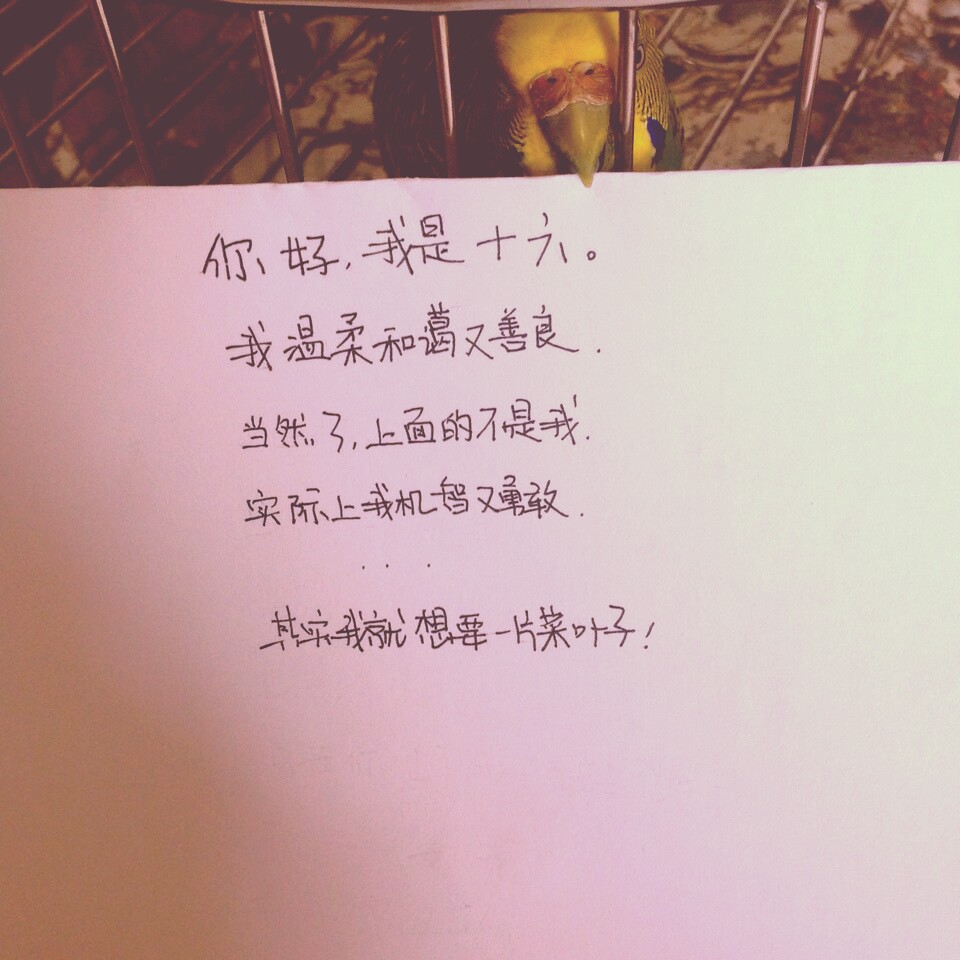 你好,我是十六。
我温柔和蔼又善良.
当然了,上面的不是我.
实际上我机智又勇敢.
...
其实我就想要一片菜叶子!